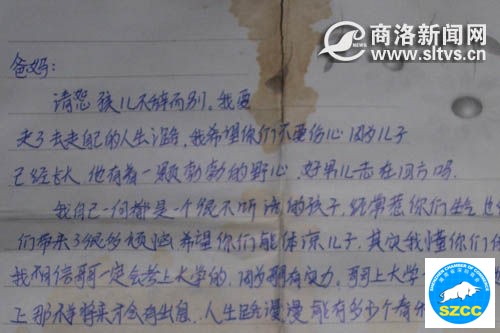 商洛新闻网
www.sltvs.cn
爸妈:
请恕孩儿不辞而别。我要
走了去走自己的人生之路,我希望你们不要伤心因为儿子
已经长大 他有着一颗勃勃的野心 好男儿志在四方吗.
我自己一向都是一个很不听话的孩子.经常惹你们生气 也
们带来了很多烦恼希望你们能体凉儿子,其实我懂你们
我相信哥一定会考上大学的,因为哥有实力。哥上大学
上那不等将来才会有出息.人生路漫漫能有多少个
SZCC